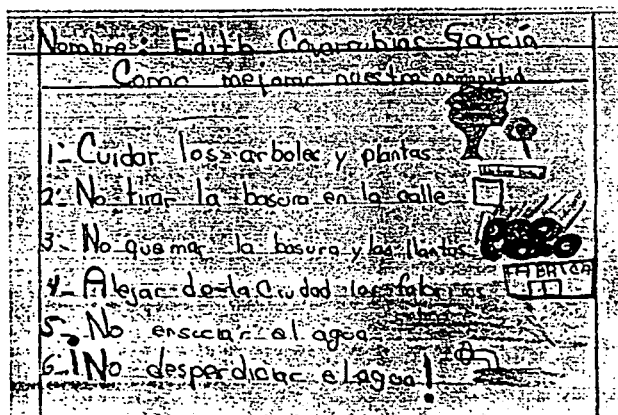 Nombre: Edith Covarrubias García
Como mejorar nuestra comunidad
1- Cuidar los arboles y plantas
2- No tirar la basura en la calle
3- No quemar la basura y las llantas
FABRICA
4- Alejar de la Ciudad las fabricas
5- No ensuciar el agua
6- ¡No desperdiciar el agua!